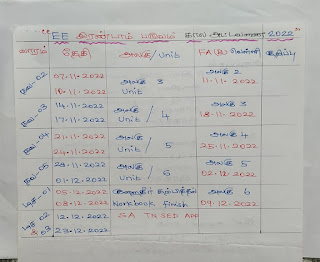 EE இரண்டாம் பருவம் கால அட்டவணை 2022
வாரம் தேதி அலகு/Unit FA(B) வெள்ளி குறிப்பு
நவ-02 07.11.2022 அலகு 3 அலகு 2
11.11.2022 Unit 11.11.2022
நவ-03 14.11.2022 அலகு / 4 அலகு 3
17.11.2022 Unit 18.11.2022
நவ-04 21.11.2022 அலகு / 5 அலகு 4
24.11.2022 Unit 25.11.2022
நவ-05 28.11.2022 அலகு / 6 அலகு 5
01.12.2022 Unit 02.12.2022
டிச-01 05.12.2022 அலகு 6
08.12.2022 Workbook finish 09.12.2022
டிச 02 12.12.2022 SA TNSED APP
& 03 23.12.2022